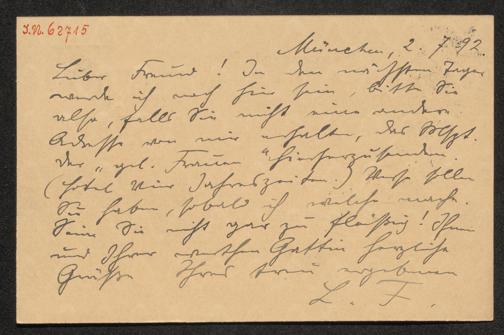 J.N. 62715
München, 2. 7. 92.
Lieber Freund! In den nächsten Tagen
werde ich noch hier sein, bitte Sie
also, falls Sie nicht eine andere
Adresse von mir erhalten, das Mspt.
der „gel. Frauen" hierherzusenden.
(Hôtel Vier Jahreszeiten.) Verse sollen
Sie haben, sobald ich welche mache.
Seien Sie nicht gar zu fleißig! Ihnen
und Ihrer werthen Gattin herzliche
Grüße Ihres treu ergebenen
L. F.